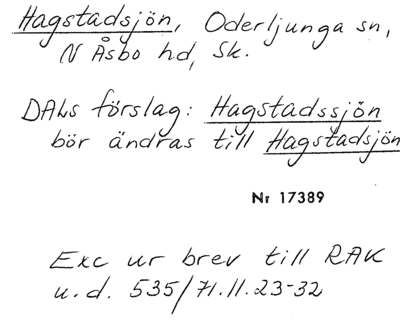 Hagstadsjön, Oderljunga sn,
N Åsbo hd, Sk.
DALs förslag: Hagstadssjön
bör ändras till Hagstadsjön
Nr 17389
Exc ur brev till RAK
u.d. 535/71.11.23-32